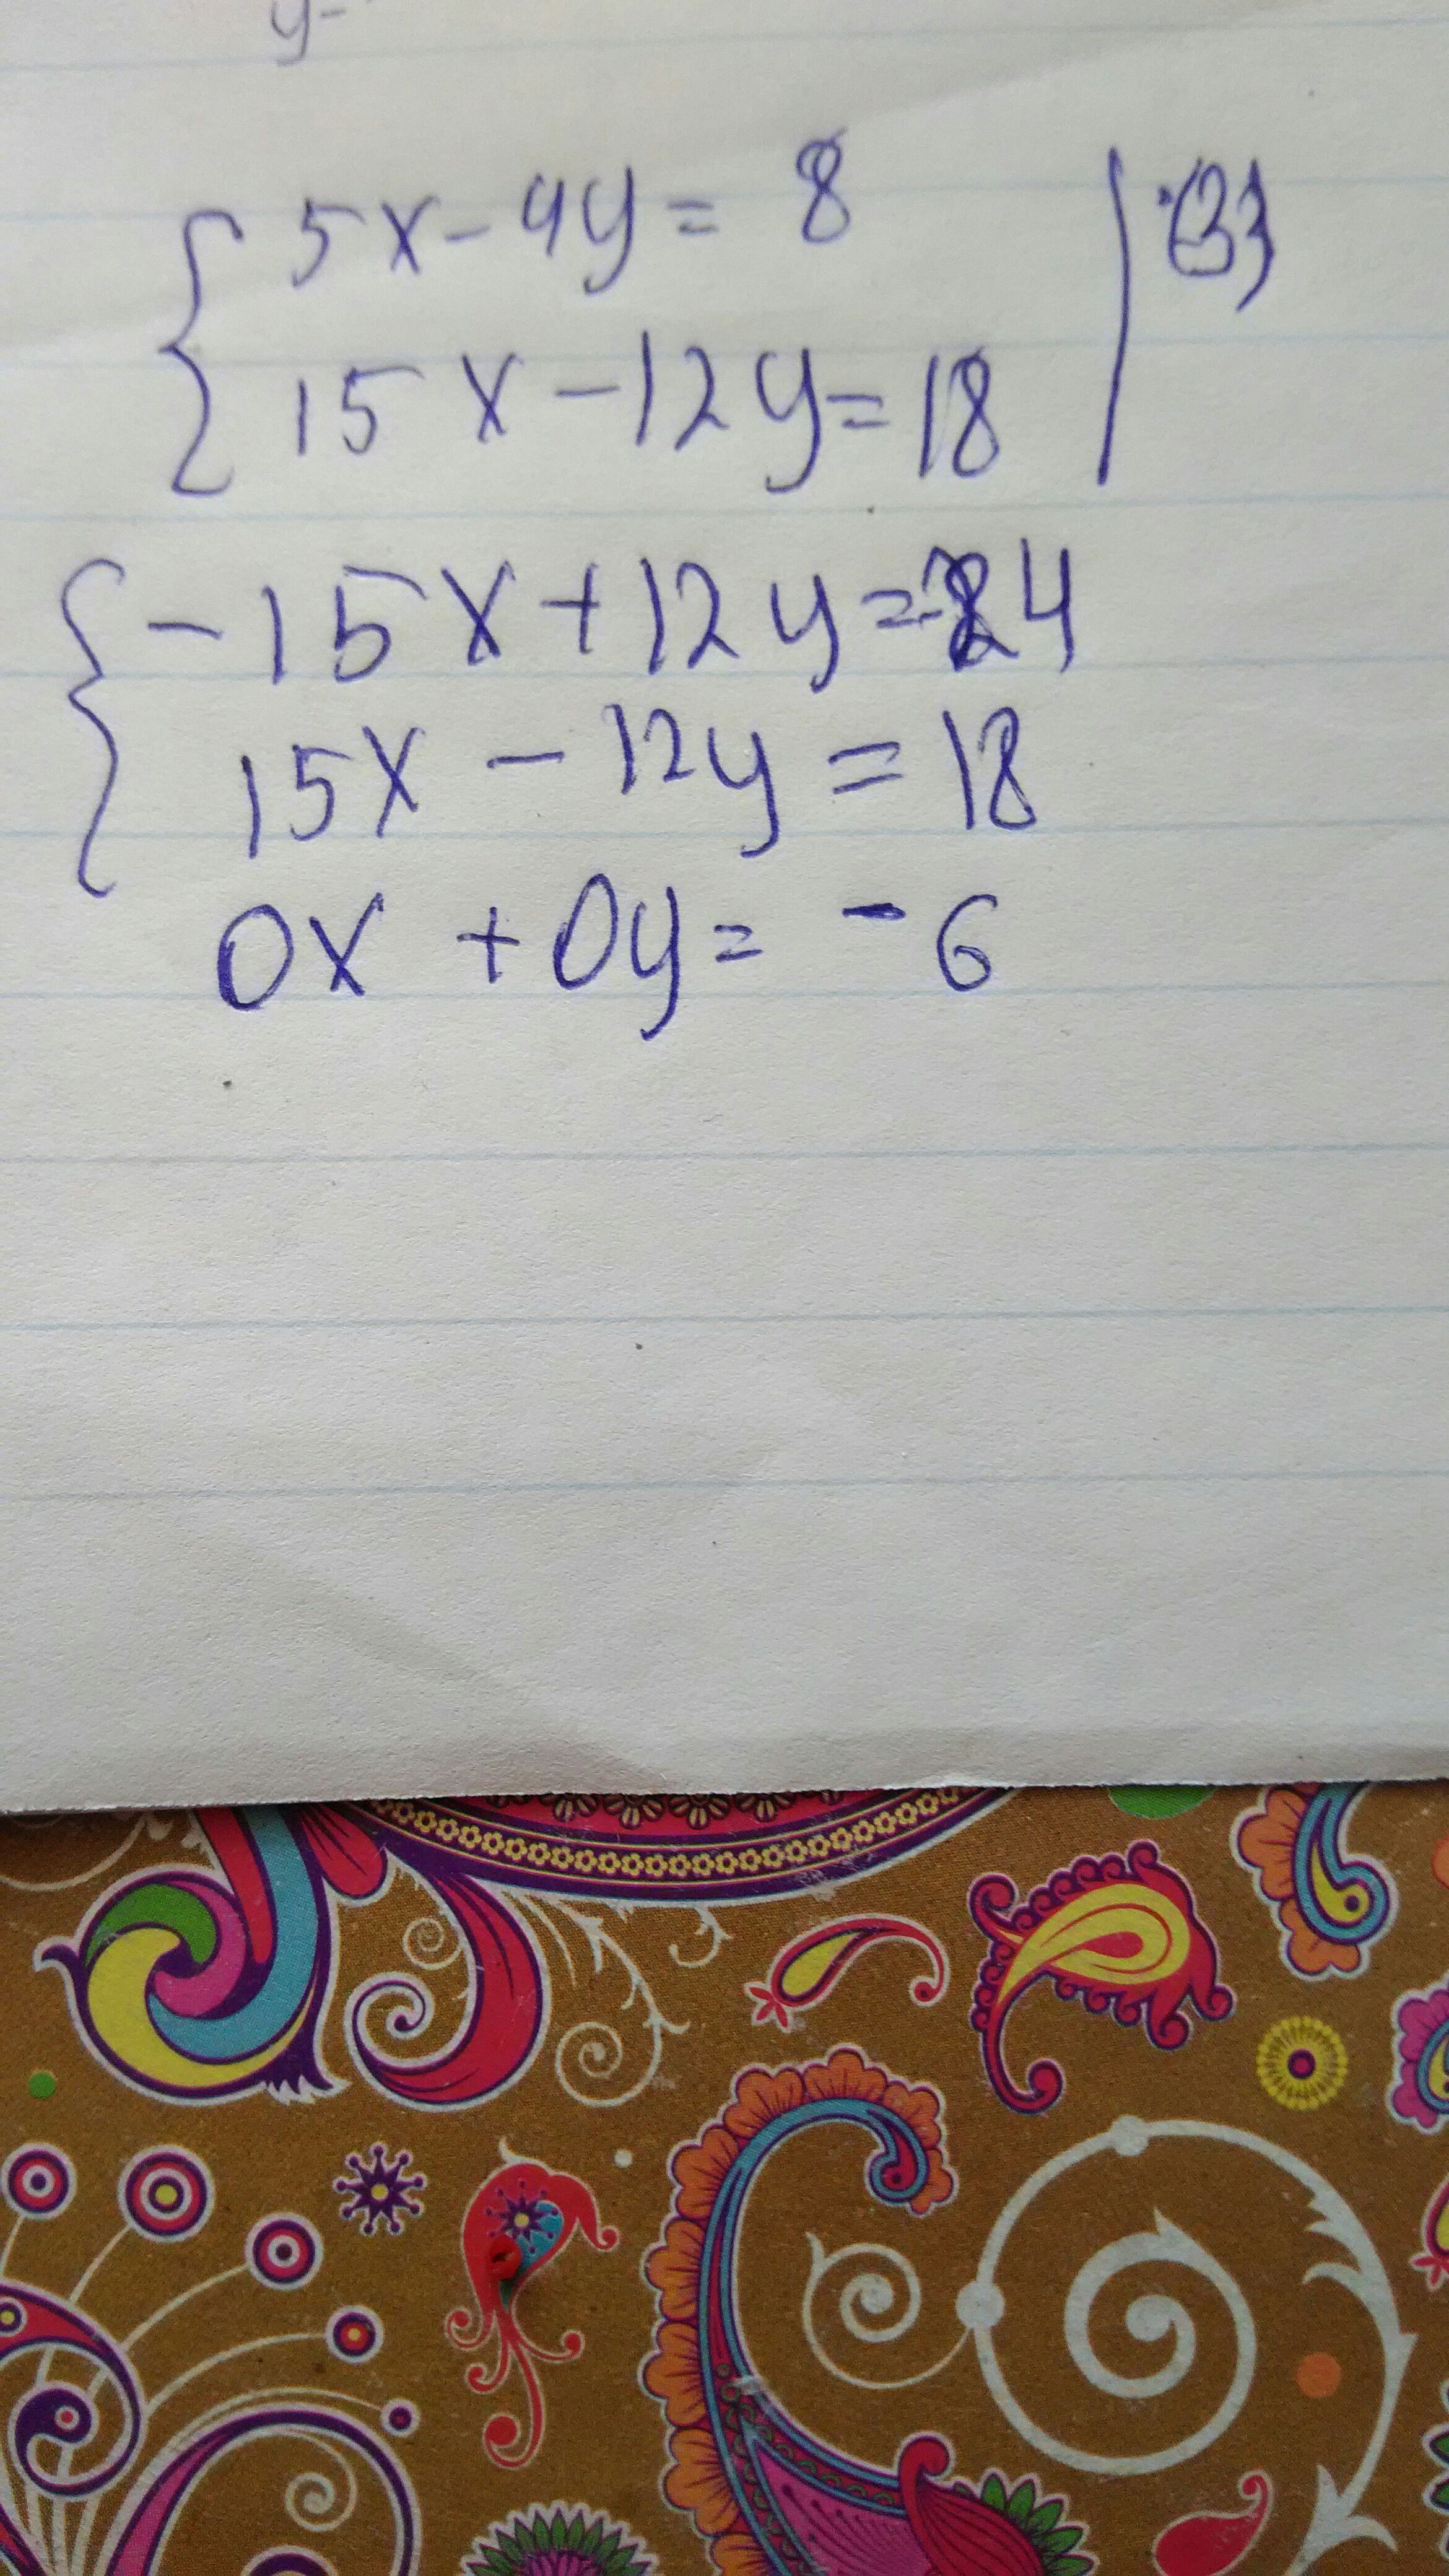 y-
{ 5x-4y= 8 | ·(3)
15x-12y=18
{ -15x+12y=-24
15x - 12y = 18
0x + 0y = -6